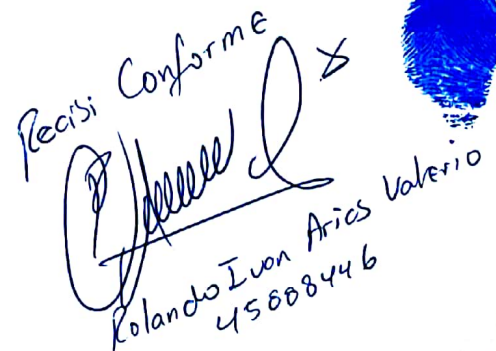 Recibi Conforme
Rolando Ivan Arias Valerio
45008446